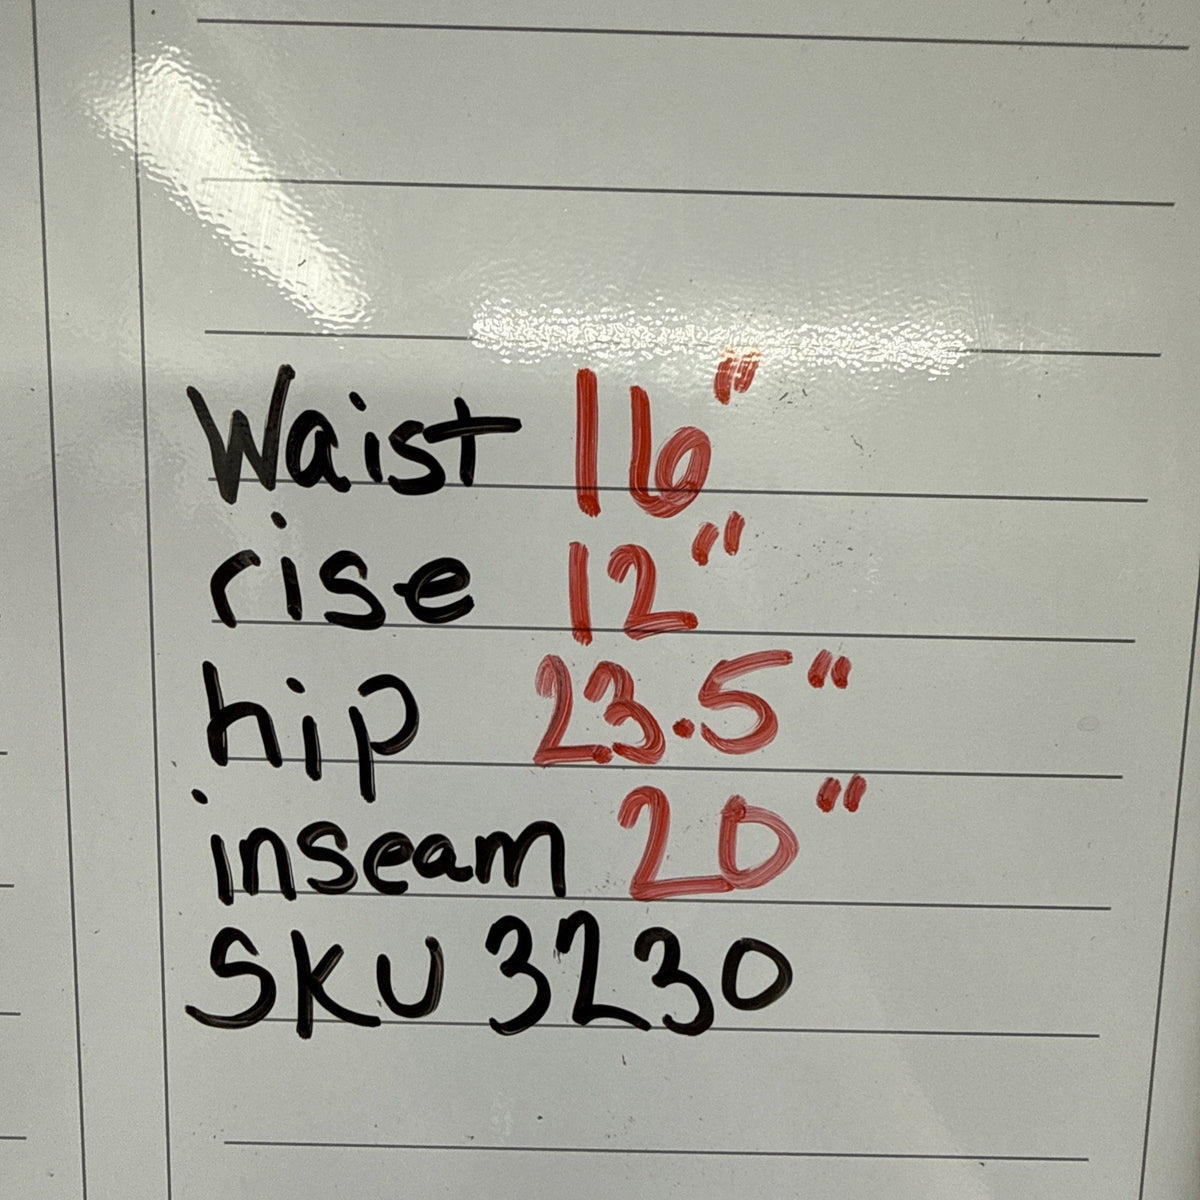 Waist 16"
rise 12"
hip 23.5"
inseam 20"
SKU 3230